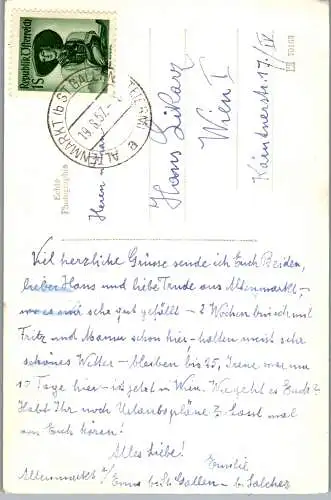 Republik Österreich
1S
ALTENMARKT (b ST. GALLEN
19.8.57
Echte
Photographie
Herrn
Hans
Wien I
Kärntnerstr. 17/IV
Viel herzliche Grüsse sende ich Euch Beiden,
lieber Hans und liebe Trude aus Altenmarkt,
wo es mir sehr gut gefällt – 2 Wochen bin ich mit
Fritz und Mama schon hier – hatten meist sehr
schönes Wetter – bleiben bis 25, Irene war
10 Tage hier – ist jetzt in Wien. Wie geht es Euch?
Habt Ihr noch Urlaubspläne? Lasst mal
von Euch hören!
Alles Liebe!
Emilie
Altenmarkt a/ Enns b. St. Gallen – b.